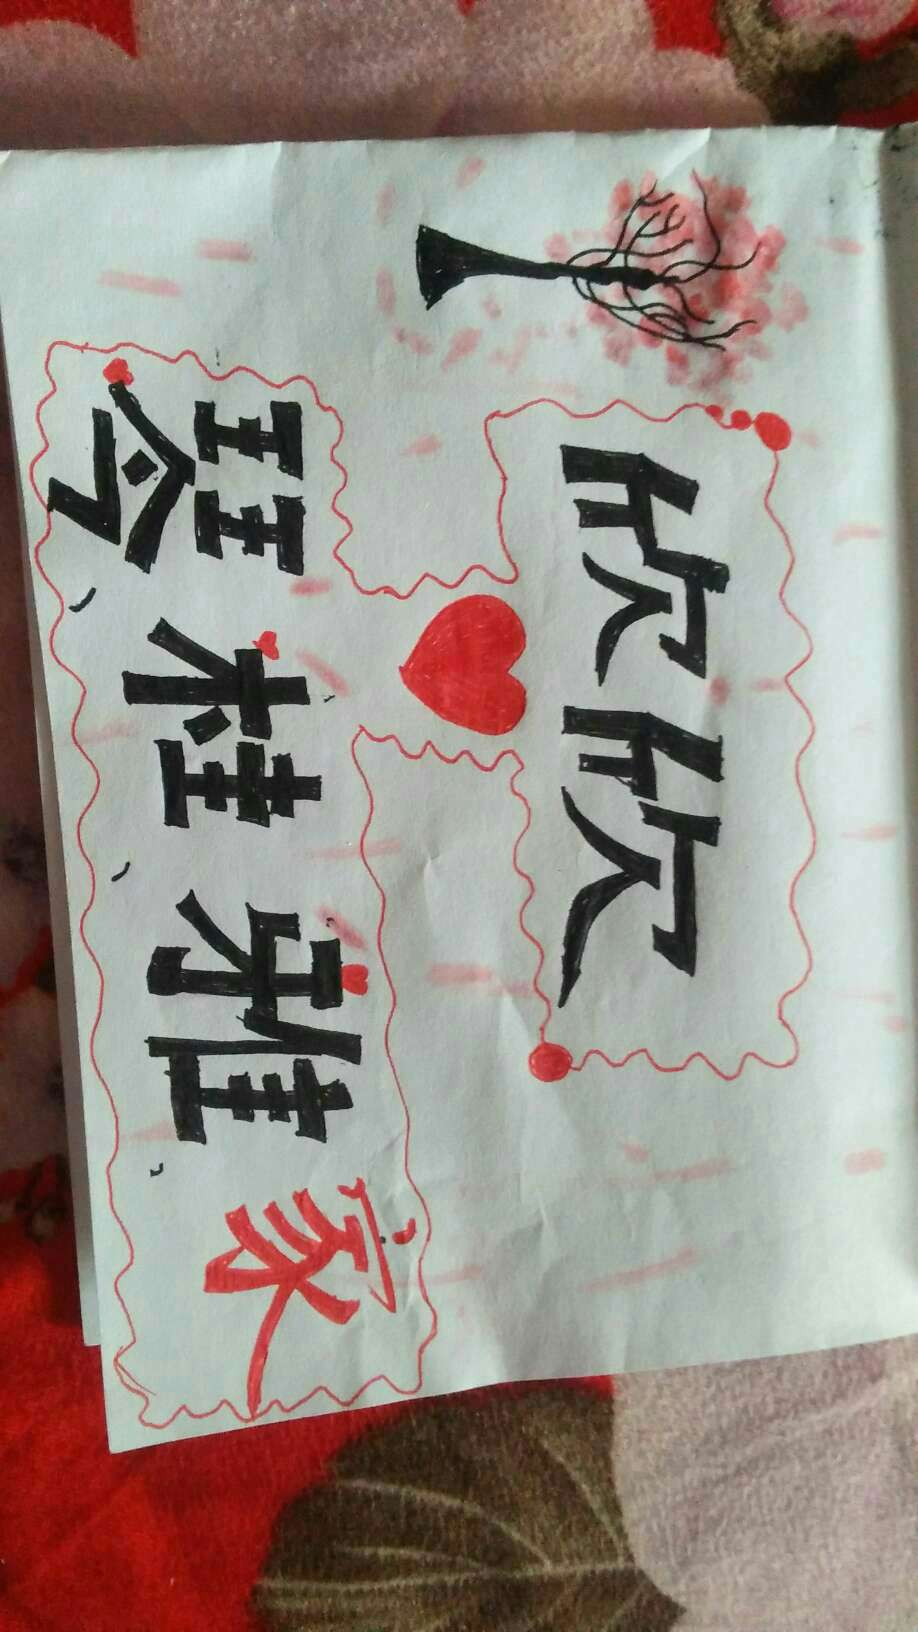 欣欣
琴、桂、雅、家